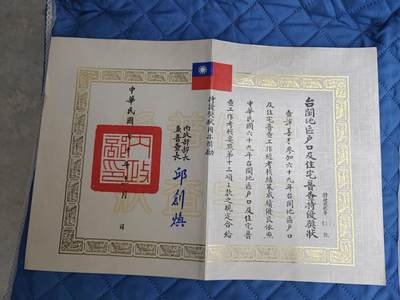 台閩地區戶口及住宅普查特優獎狀
查譚善 參加六十九年台閩地區戶口
及住宅普查工作經考核結果成績優良依照
中華民國六十九年台閩地區戶口及住宅普
查工作考核要點第十三項 款之規定合給
特優獎狀用示獎勵
內政部部長
兼普查長
邱創煥
中華民國 年 月 日